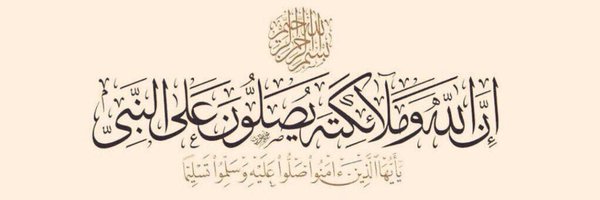 بسم الله الرحمن الرحيم
إن الله وملائكته يصلون على النبي
يَا أَيُّهَا الَّذِينَ ءَامَنُوا صَلُّوا عَلَيْهِ وَسَلِّمُوا تَسْلِيمًا